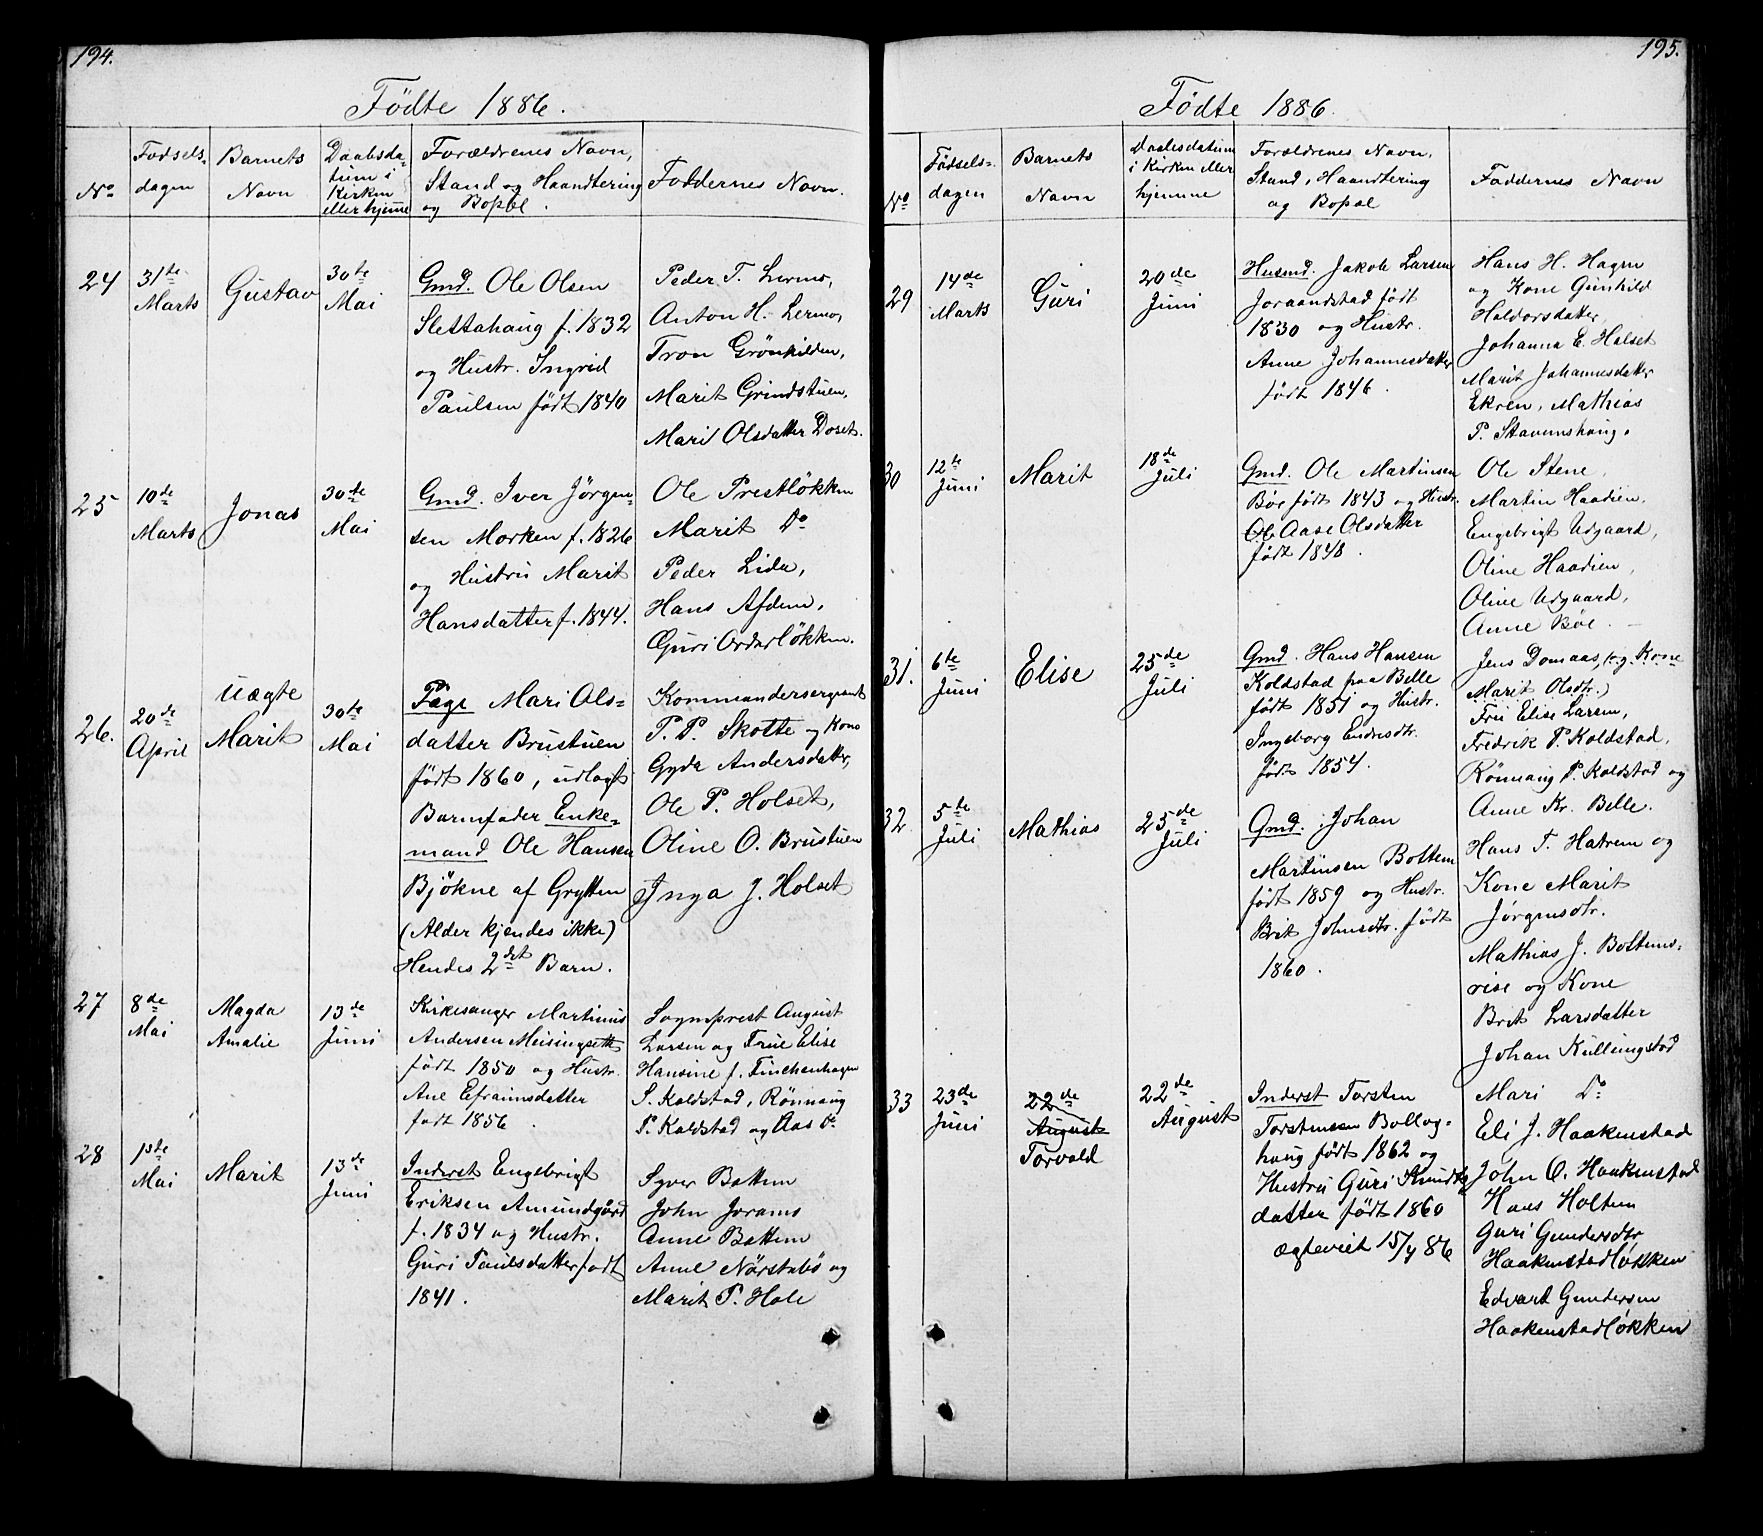 194.
Födte 1886.
No
Fodsels-
dagen
Barnets
Navn
Daabsda-
tum i
Kirken
eller hjeme
Forældrenes Navn,
Stand og Haandtering
og Bopæl.
Faddernes Navn.
24
31te
Marts
Gustav
30te
Mai
Gmd. Ole Olsen
Slettahaug f. 1832
og Hustr. Ingrid
Paulsen født 1840
Peder T. Lermo,
Anton H. Lermo,
Tron Grönkilden,
Marit Grindstuen,
Mari Olsdatter Doset.
25
10de
Marts
Jonas
30te
Mai
Gmd. Iver Jörgen-
sen Morken f. 1826
og Hustru Marit
Hansdatter f. 1844.
Ole Prestlökken
Marit Do
Peder Lida,
Hans Afdem,
Guri Ordalökken.
26.
20de
April
Uægte
Marit
30te
Mai
Pige Mari Ols-
datter Brustuen
født 1860, udlagt
Barnefader Enke-
mand Ole Hansen
Bjökne af Grytten
(Alder kjendes ikke)
Hendes 2det Barn.
Kommandersergeant
P. P. Skotte og Kone
Gyda Andersdatter,
Ole P. Holset,
Oline O. Brustuen
Inga J. Holset
27
8de
Mai
Magda
Amalie
13de
Juni
Kirkesanger Martinus
Andersen Meisingseth
født 1850 og Hustr.
Ane Efraimsdatter
født 1856.
Sognprest August
Larsen og Frue Elise
Hansine f. Finchenhagen
S. Koldstad, Rönnaug
P. Koldstad og Aas Do
28
1ste
Mai
Marit
13de
Juni
Inderst Engebrigt
Eriksen Amundgård
f. 1834 og Hustr.
Guri Paulsdatter født
1841.
Syver Bottem
John Joramo
Anne Bottem
Anne Nörstebö og
Marit P. Hole
195.
Födte 1886.
No
Födsels-
dagen
Barnets
Navn
Daabsdatum
i Kirken eller
hjemme
Forældrenes Navn,
Stand, Haandtering
og Bopæl
Faddernes Navn
29
14de
Marts
Guri
20de
Juni
Husmd. Jakob Larsen
Joraandstad født
1830 og Hustr.
Anne Johannesdatter
født 1846.
Hans H. Hagen
og Kone Gunhild
Haldorsdatter,
Johanna E. Holset
Marit Johannesdatter
Ekren, Mathias
P. Stavemshaug.
30
12te
Juni
Marit
18de
Juli
Gmd. Ole Martinsen
Bör født 1843 og Hustr.
Ole Aase Olsdatter
født 1848.
Ole Stene,
Martin Haadien,
Engebrigt Udgaard,
Oline Haadien,
Oline Udgaard,
Anne Böe.
31.
6te
Juni
Elise
25de
Juli
Gmd. Hans Hansen
Koldstad paa Belle
født 1851 og Hustr.
Ingeborg Endresdtr.
født 1854.
Jens Domaas, (og Kone
Marit Olsdtr.)
Frü Elise Larsen,
Fredrik P. Koldstad,
Rönnaug P. Koldstad og
Anne Kr. Belle.
32
5te
Juli
Mathias
25de
Juli
Gmd. Johan
Martinsen Bottem
født 1859 og Hustr.
Brit Johnsdtr. født
1860.
Hans T. Hatrem og
Kone Marit
Jörgensdtr.
Mathias J. Bottems-
rise og Kone
Brit Larsdatter
Johan Kullingstad
Mari Do
33
23de
Juni
22de
August
Torvald
22de
August
Inderst Torsten
Torstensen Bollag-
haug født 1862 og
Hustru Guri Knuds
datter født 1860
ægteviet 15/4 86
Eli J. Haakenstad
John O. Haakenstad
Hans Holten
Guri Gundersdtr
Haakenstadlökken
Edvart Gundersen
Haakenstadlökken